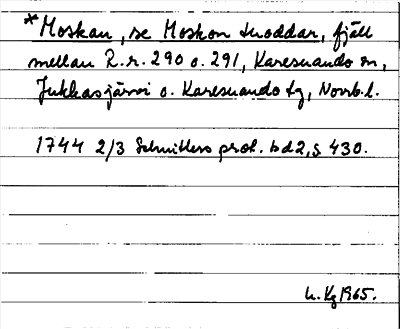 *Moskau, se Moskon duoddar, fjäll
mellan R.r. 290 o. 291, Karesuando sn,
Jukkasjärvi o. Karesuando tg, Norrb.l.
1744 2/3 Schnitlers prot. bd 2, s 430.
h. Kg 1965.